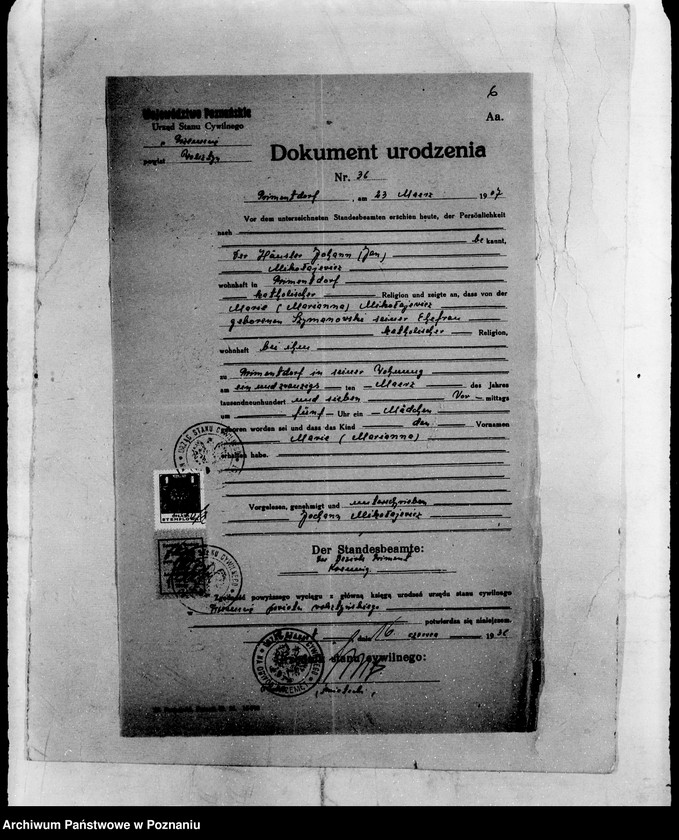 6
Aa.
Województwo Poznańskie
Urząd Stanu Cywilnego
powiat Wolsztyn
Dokument urodzenia
Nr. 36
Primentdorf, am 23 Maerz 1907
Vor dem unterzeichneten Standesbeamten erschien heute, der Persönlichkeit
nach
be kannt,
der Häusler Johann (Jan)
Mikołajewicz
wohnhaft in Primentdorf
katholischer Religion und zeigte an, dass von der
Maria (Marianna) Mikołajewicz
geborenen Szymanowski seiner Ehefrau
katholischer Religion,
wohnhaft bei ihm
zu Primentdorf in seiner Wohnung
am einundzwanzigs ten Maerz des Jahres
tausendneunhundert und sieben Vor mittags
um fünf Uhr ein Mädchen
geboren worden sei und dass das Kind den Vornamen
Maria (Marianna)
erhalten habe.
Vorgelesen, genehmigt und unterschrieben
Johann Mikołajewicz
Der Standesbeamte:
Der Bezirk Priment
Zgodność powyższego wyciągu z główną księgą urodzeń urzędu stanu cywilnego
powiatu wolsztyńskiego
potwierdza się niniejszem.
dnia 16 czerwca 1936
stanu cywilnego:
Archiwum Państwowe w Poznaniu